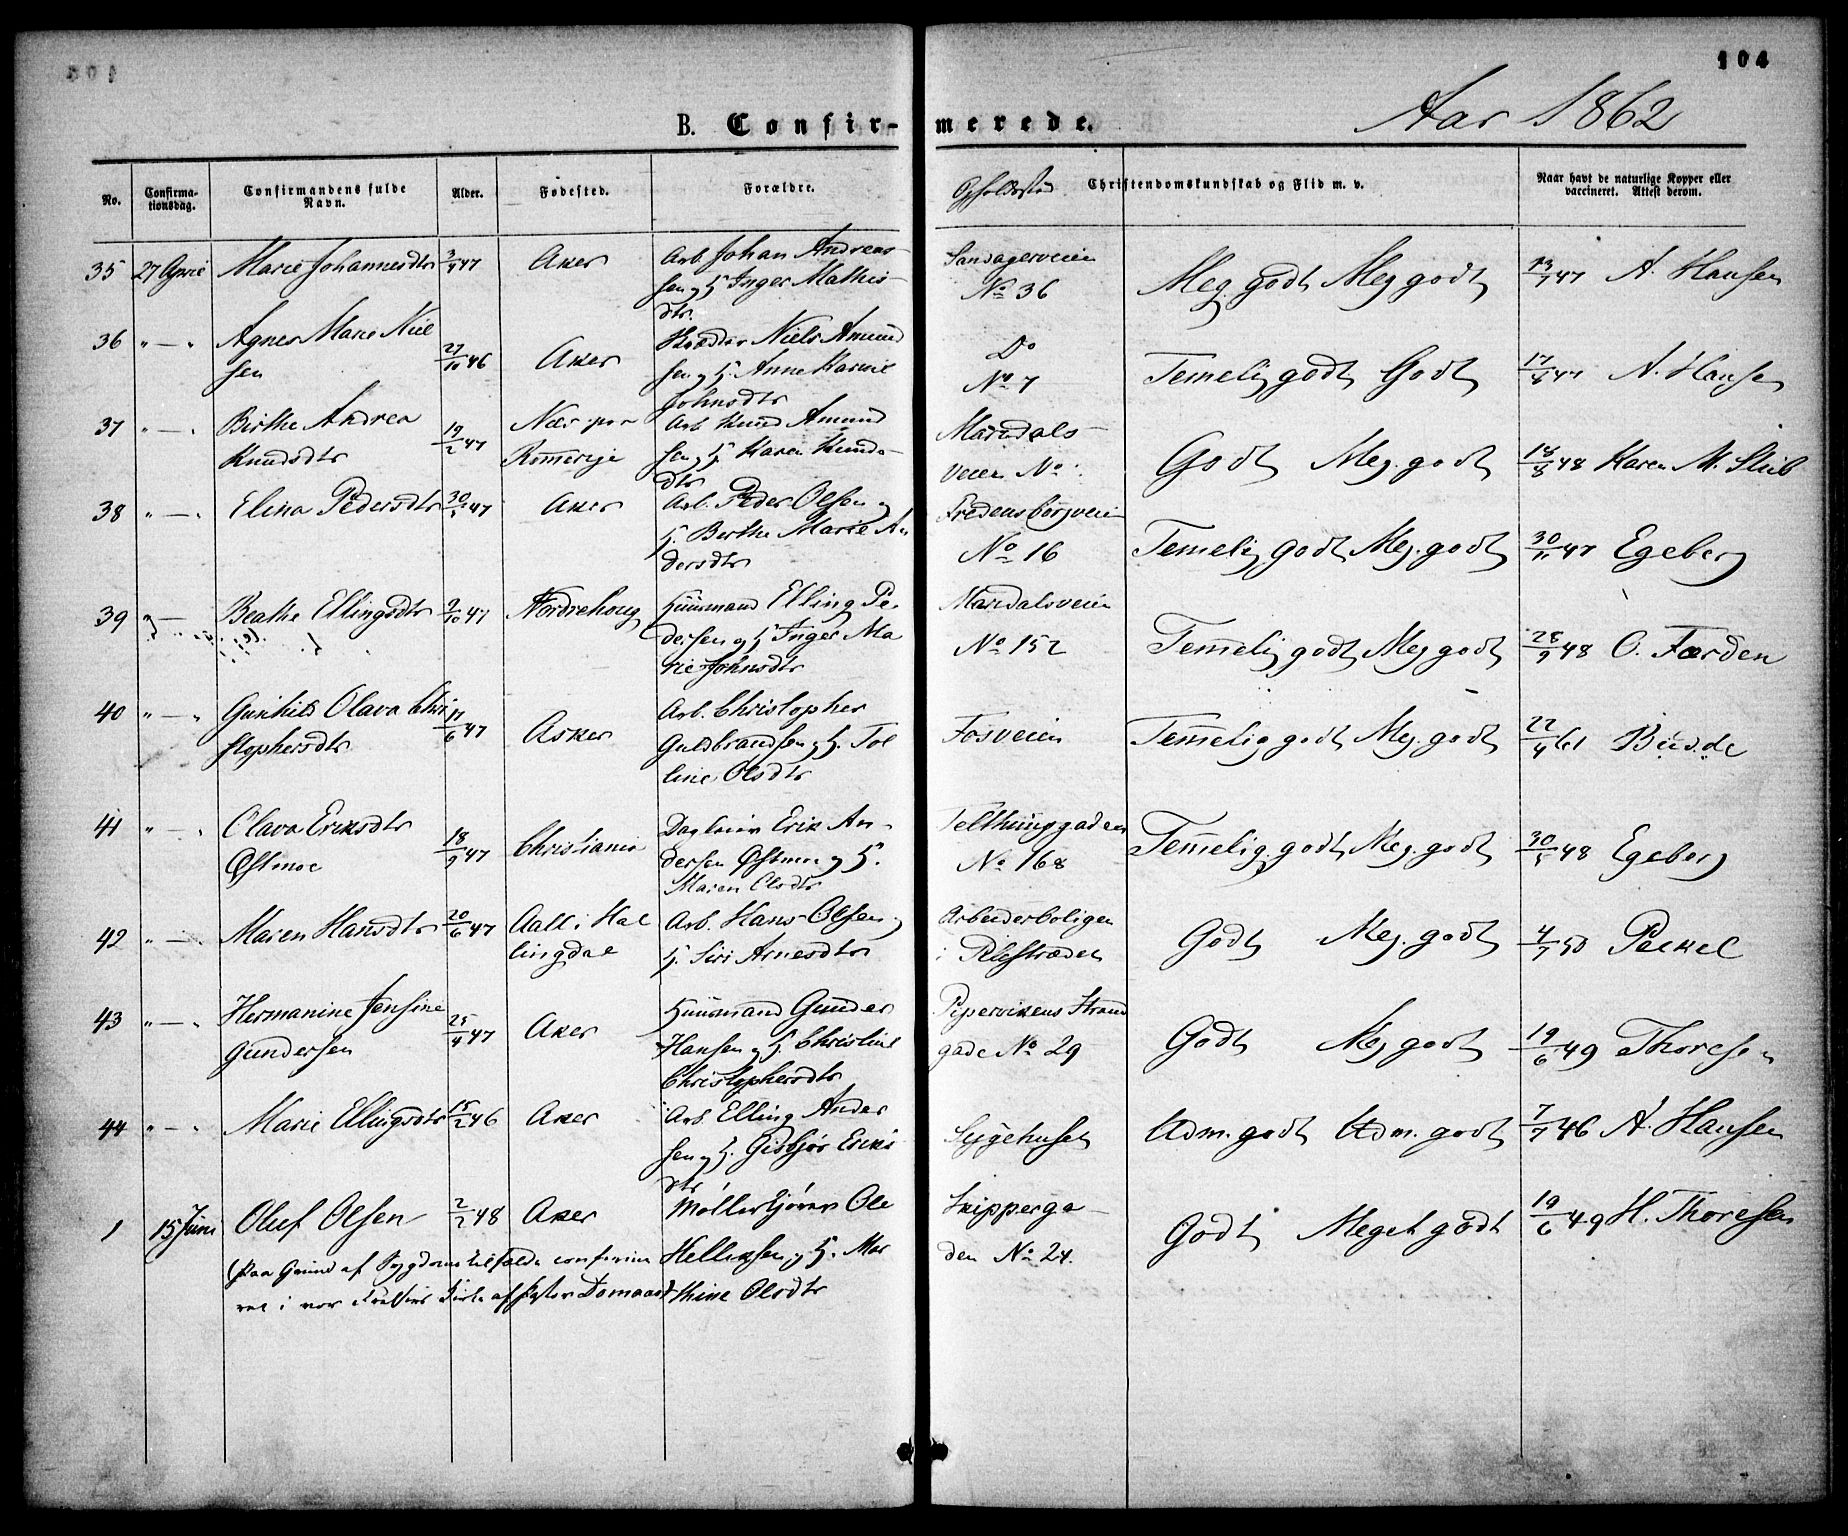 104
B. Confir- merede.
Aar 1862
No.
Confirma-
tionsdag.
Confirmandens fulde
Navn.
Alder.
Fødested.
Forældre.
Opholdssted
Christendomskundskab og Flid m. v.
Naar havt de naturlige Kopper eller
vaccineret. Attest derom.
35 27 April Marie Johannesdtr 3/4 47 Aker Arb. Johan Andreas-
sen og H. Inger Mathis-
dtr.
Sandagerveien
No 36
Meg. godt Meg godt 13/7 47 A. Hansen
36 " — " Agnes Marie Niel
sen
27/10 46 Aker Skrædder Niels Amund
sen og H. Anne Karine
Johnsdtr
Do
No 7
Temelig godt Godt 17/6 47 A. Hansen
37 " — " Birthe Andrea
Knudsdtr
19/2 47 Næs paa
Romerige
Arb. Knud Amund
sen og H. Karen Knuds-
dtr
Maridals-
veien No
Godt Meg. godt 18/8 48 Karen M. Stub
38 " — " Elina Pedersdtr 30/5 47 Aker Arb. Peder Olsen og
H. Berthe Marie An
dersdtr
Fredensborgveien
No 16
Temelig godt Meg. godt 30/11 47 Egeberg
39 " — Beathe Ellingsdtr 9/10 47 Nordrehoug Huusmand Elling Pe-
dersen og H. Inger Ma
rie Johnsdtr
Maridalsveien
No 152
Temelig godt Meg godt 28/9 48 O. Færden
40 " — " Gunhild Olava Chri
stophersdtr
17/6 47 Asker Arb. Christopher
Guldbrandsen og H. Tol
line Olsdtr
Fosveien
Temelig godt Meg. godt 22/4 61 Budde
41 " — " Olava Eriksdtr
Østmoe
18/9 47 Christiania Dagleier Erik An-
dersen Østmoe og H.
Maren Olsdtr
Telthuusgaden
No 168
Temelig godt Meg. godt 30/5 48 Egeberg
42 " — " Maren Hansdtr 20/6 47 Aall i Hal
lingdal
Arb. Hans Olsen og
H. Siri Arnesdtr
Arbeiderboligen
i Pilestrædet
Godt Meg. godt 4/7 50 Peckel
43 " — " Hermanine Jensine
Gundersen
25/4 47 Aker Huusmand Gunder
Hansen og H. Christine
Christophersdtr
Pipervikens Strand
gade No 29
Godt Meg godt 19/6 49 Thoresen
44 " — " Marie Ellingsdtr 15/2 46 Aker Arb. Elling Ander
sen og H. Gisbjør Eriks
dtr
Sygehuset
Udm. godt Udm. godt 7/7 46 A. Hansen
1 15 Juni Oluf Olsen 2/2 48 Aker Møllerkjører Ole
Helleksen og H. Mar
thine Olsdtr
Skipperga-
den No 24.
Godt Meget godt 19/6 49 H. Thoresen
(Paa Grund af Sygdomstilfælde confirme
ret i vor Frelsers Kirke af Pastor Domaas)